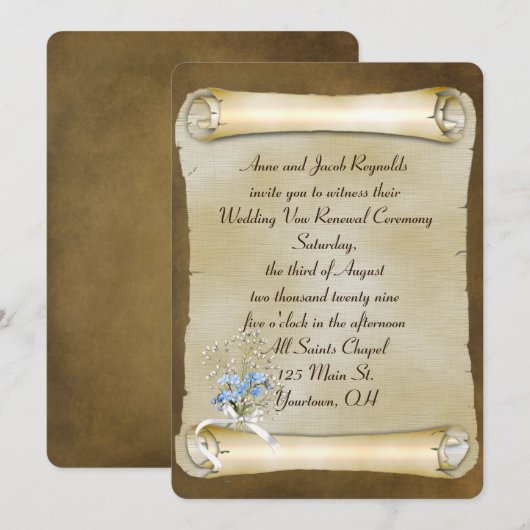 Anne and Jacob Reynolds
invite you to witness their
Wedding Vow Renewal Ceremony
Saturday,
the third of August
two thousand twenty nine
five o'clock in the afternoon
All Saints Chapel
125 Main St.
Yourtown, OH